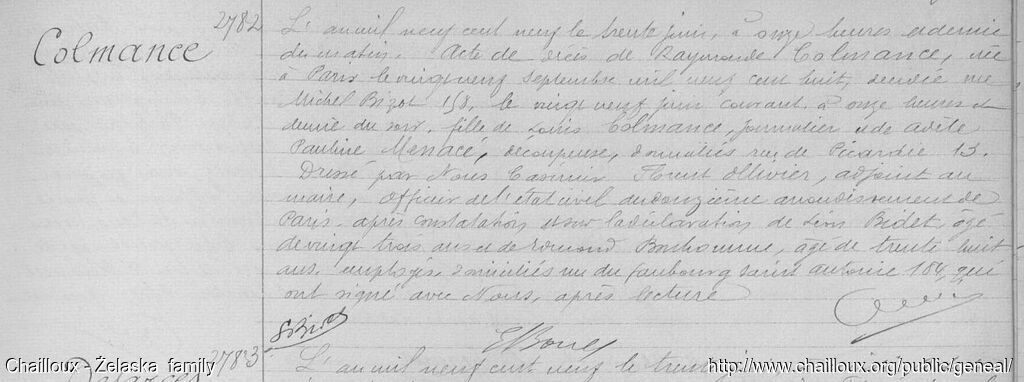 2782
Colmance
L'an mil neuf cent neuf le trente juin, à onze heures et demie
du matin. Acte de décès de Raymonde Colmance, née
à Paris le vingt neuf Septembre mil neuf cent huit, décédée rue
Michel Bizot 158, le vingt neuf juin courant à onze heures et
demie du soir, fille de Louis Colmance, journalier et de Adèle
Pauline Menacé, découpeuse, domiciliés rue de Picardie 13.
Dressé par Nous Casimir Ollivier, adjoint au
maire, officier de l'état civil du douzième arrondissement de
Paris, après constatation et sur la déclaration de Léon Bidet, âgé
de vingt trois ans et de Bonhomme, âgé de trente huit
ans, employés, domiciliés rue du faubourg Saint Antoine 184, qui
ont signé avec Nous, après lecture
2783
L'an mil neuf cent neuf le trente juin
Chailloux - Żelaska family
http://www.chailloux.org/public/geneal/